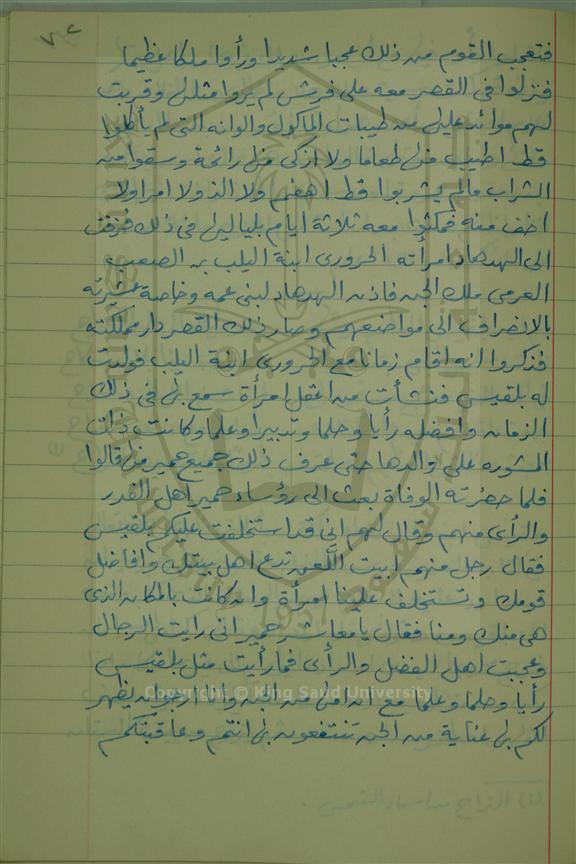 ٧٤
فتعجب القوم من ذلك عجبا شديدا ورأوا ملكا عظيما
فنزلوا في القصر معه على فرش لم يروا مثلها وقربت
لهم موائد عليها من طيبات المأكول والوانه التي لم يأكلوا
قط اطيب منها طعاما ولا ازكى منها رائحة وسقوا من
الشراب مالم يشربوا قط اهضم ولا الذ ولا امرا ولا
اخف منه فمكثوا معه ثلاثة ايام بلياليها في ذلك فزفت
الى الهدهاد امرأته الحرورى ابنة اليلب بن الصعب
العرمى ملك الجن فاذن الهدهاد لبنى عمه وخاصة عشيرته
بالانصراف الى مواضعهم وصار ذلك القصر دار مملكته
فذكروا انه اقام زمانا مع الحرورى ابنة اليلب فولدت
له بلقيس فنشأت من اعقل امرأة سمع بها في ذلك
الزمان وافضله رأيا وحلما وتدبيرا وعلما وكانت ذات
المشوره على والدها حتى عرف ذلك جميع حمير منها قالوا
فلما حضرته الوفاة بعث الى رؤساء حمير اهل القدر
والرأى منهم وقال لهم اني قد استخلفت عليكم بلقيس
فقال رجل منهم ابيت اللعن تدع اهل بيتك وافاضل
قومك وتستخلف علينا امرأة وان كانت بالمكان الذى
هى منك ومنا فقال يا معاشر حمير انى رايت الرجال
وعجبت اهل الفضل والرأى فما رأيت مثل بلقيس
رأيا وحلما وعلما مع ان امها من الجن وانا ارجو ان يظهر
لكم بها عناية من الجن تنتفعون بها انتم وعاقبتكم
Copyright © King Saud University